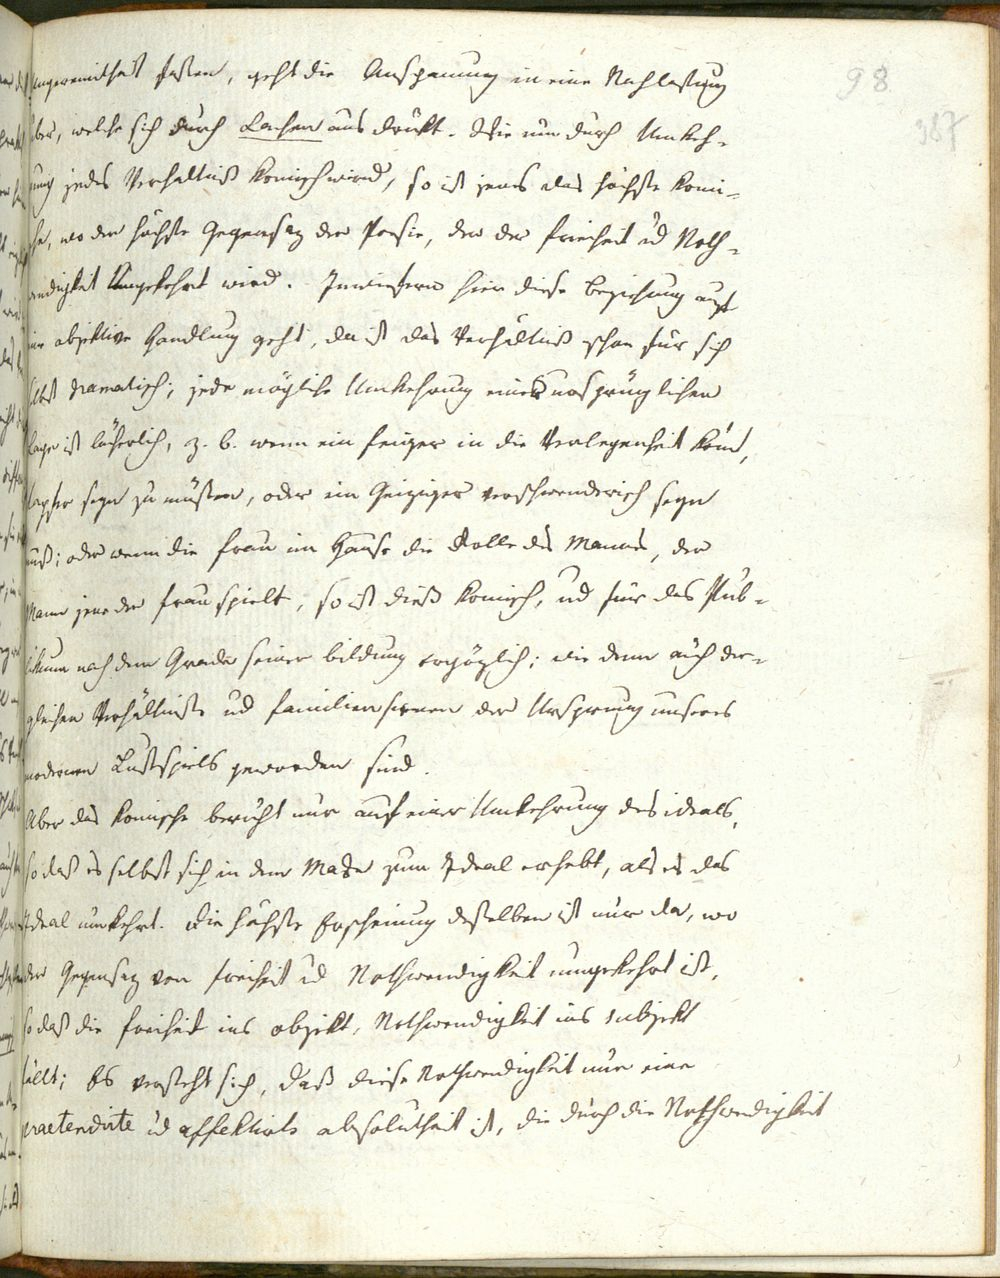 98
387
Ungereimtheit fassen, geht die Anspanung in eine Nachlassung
über, welche sich durch Lachen aus drückt. Wie nun durch Umkeh-
rung jedes Verhältniß komisch wird, so ist jenes das höchste komi-
sche, wo der höchste Gegensaz der Poesie, der der Freiheit ud Noth-
wendigkeit Umgekehrt wird. Inwiefern hier diese Beziehung auf
eine objektive Handlung geht, da ist das Verhältniß schon für sich
selbst dramatisch; jede mögliche Umkehrung eines ursprünglichen
ist lächerlich, z. b. wenn ein feiger in die Verlegenheit kömt,
tapfer seyn zu müssen, oder ein Geiziger verschwenderisch seyn
muß; oder wenn die Frau im Hause die Rolle des Manns, der
Mann jene der Frau spielt, so ist dieß komisch, ud für das Pub-
likum nach dem Grade seiner bildung ergözlich; wie denn auch der-
gleichen Verhältniße ud Familienscenen der Ursprung unseres
modernen Lustspiels geworden sind.
Aber das komische beruht nur auf einer Umkehrung des ideals,
so daß es selbst sich in dem Maße zum Ideal erhebt, als es das
Ideal umkehrt. Die höchste Erscheinung desselben ist nur da, wo
der Gegensaz von Freiheit ud Nothwendigkeit umgekehrt ist,
so daß die Freiheit ins objekt, Nothwendigkeit ins subjekt
fällt; Es versteht sich, daß diese Nothwendigkeit nur eine
praetendirte ud affektirte absolutheit ist, die durch die Nothwendigkeit